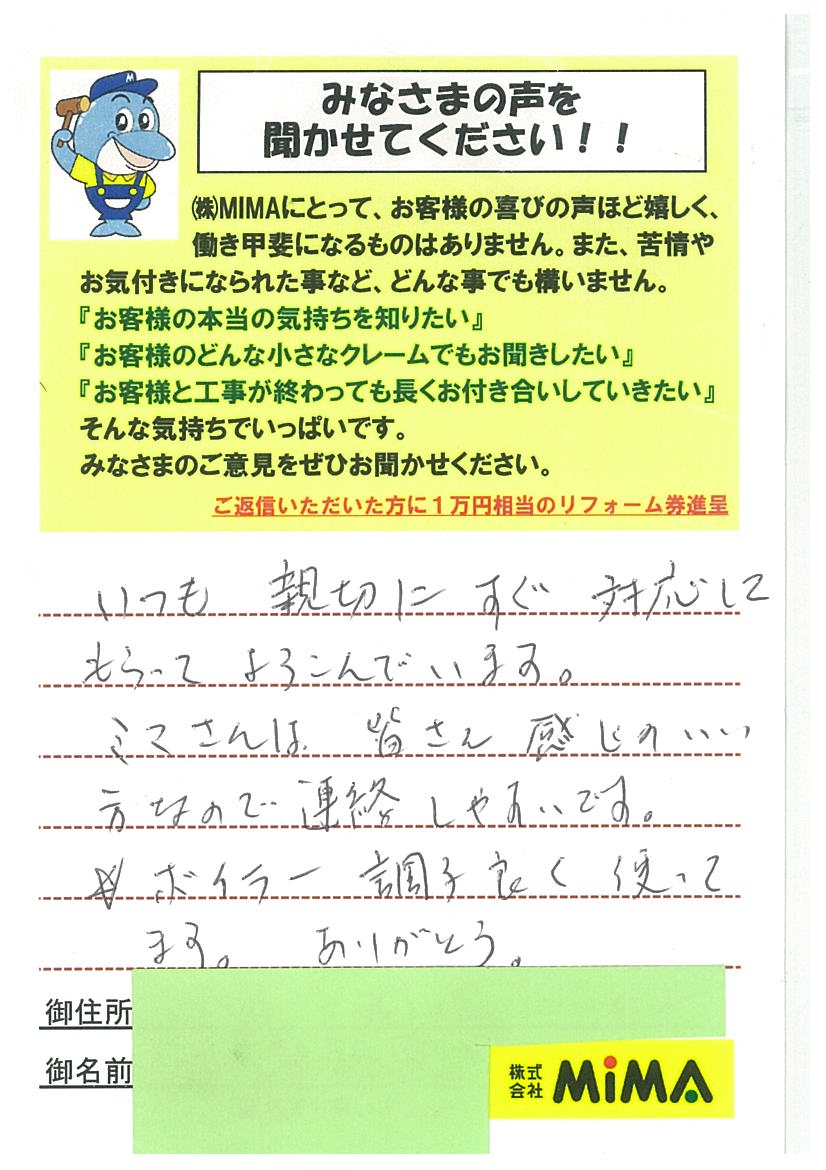 M
みなさまの声を
聞かせてください！！
㈱MIMAにとって、お客様の喜びの声ほど嬉しく、
働き甲斐になるものはありません。また、苦情や
お気付きになられた事など、どんな事でも構いません。
『お客様の本当の気持ちを知りたい』
『お客様のどんな小さなクレームでもお聞きしたい』
『お客様と工事が終わっても長くお付き合いしていきたい』
そんな気持ちでいっぱいです。
みなさまのご意見をぜひお聞かせください。
ご返信いただいた方に１万円相当のリフォーム券進呈
いつも 親切に すぐ 対応して
もらって よろこんでいます。
ミマさんは 皆さん 感じのいい
方なので 連絡しやすいです。
ボイラー 調子良く 使って
ます。 ありがとう。
御住所
御名前
株式会社 MiMA